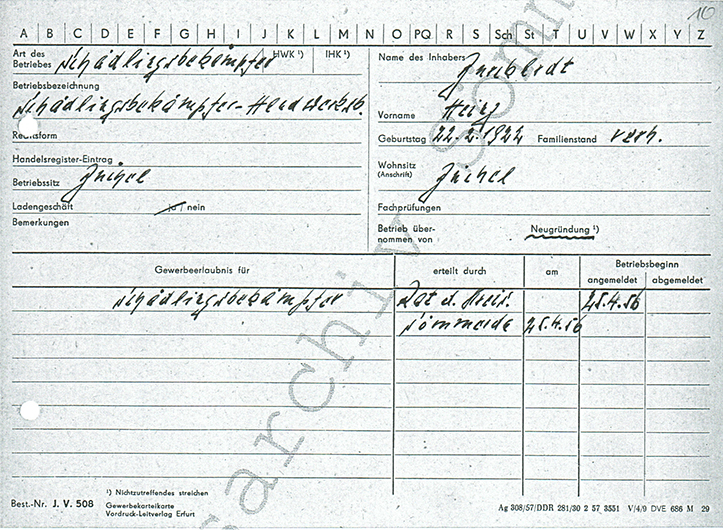 10
A B C D E F G H I J K L M N O PQ R S Sch St T U V W X Y Z
Art des Betriebes Schädlingsbekämpfer HWK ¹) IHK ¹)
Betriebsbezeichnung
Schädlingsbekämpfer-Handwerksb.
Rechtsform
Handelsregister-Eintrag
Betriebssitz
Ladengeschäft ja / nein
Bemerkungen
Name des Inhabers
Vorname Heinz
Geburtstag 22.2.1924 Familienstand verh.
Wohnsitz (Anschrift)
Fachprüfungen
Betrieb über-
nommen von Neugründung ¹)
Gewerbeerlaubnis für erteilt durch am Betriebsbeginn
angemeldet abgemeldet
Schädlingsbekämpfer Rat d. Kreis. 25.4.56
Sömmerda 25.4.56
¹) Nichtzutreffendes streichen
Best.-Nr. J. V. 508 Gewerbekarteikarte
Vordruck-Leitverlag Erfurt
Ag 308/57/DDR 281/30 2 57 3551 V/4/9 DVE 686 M 29